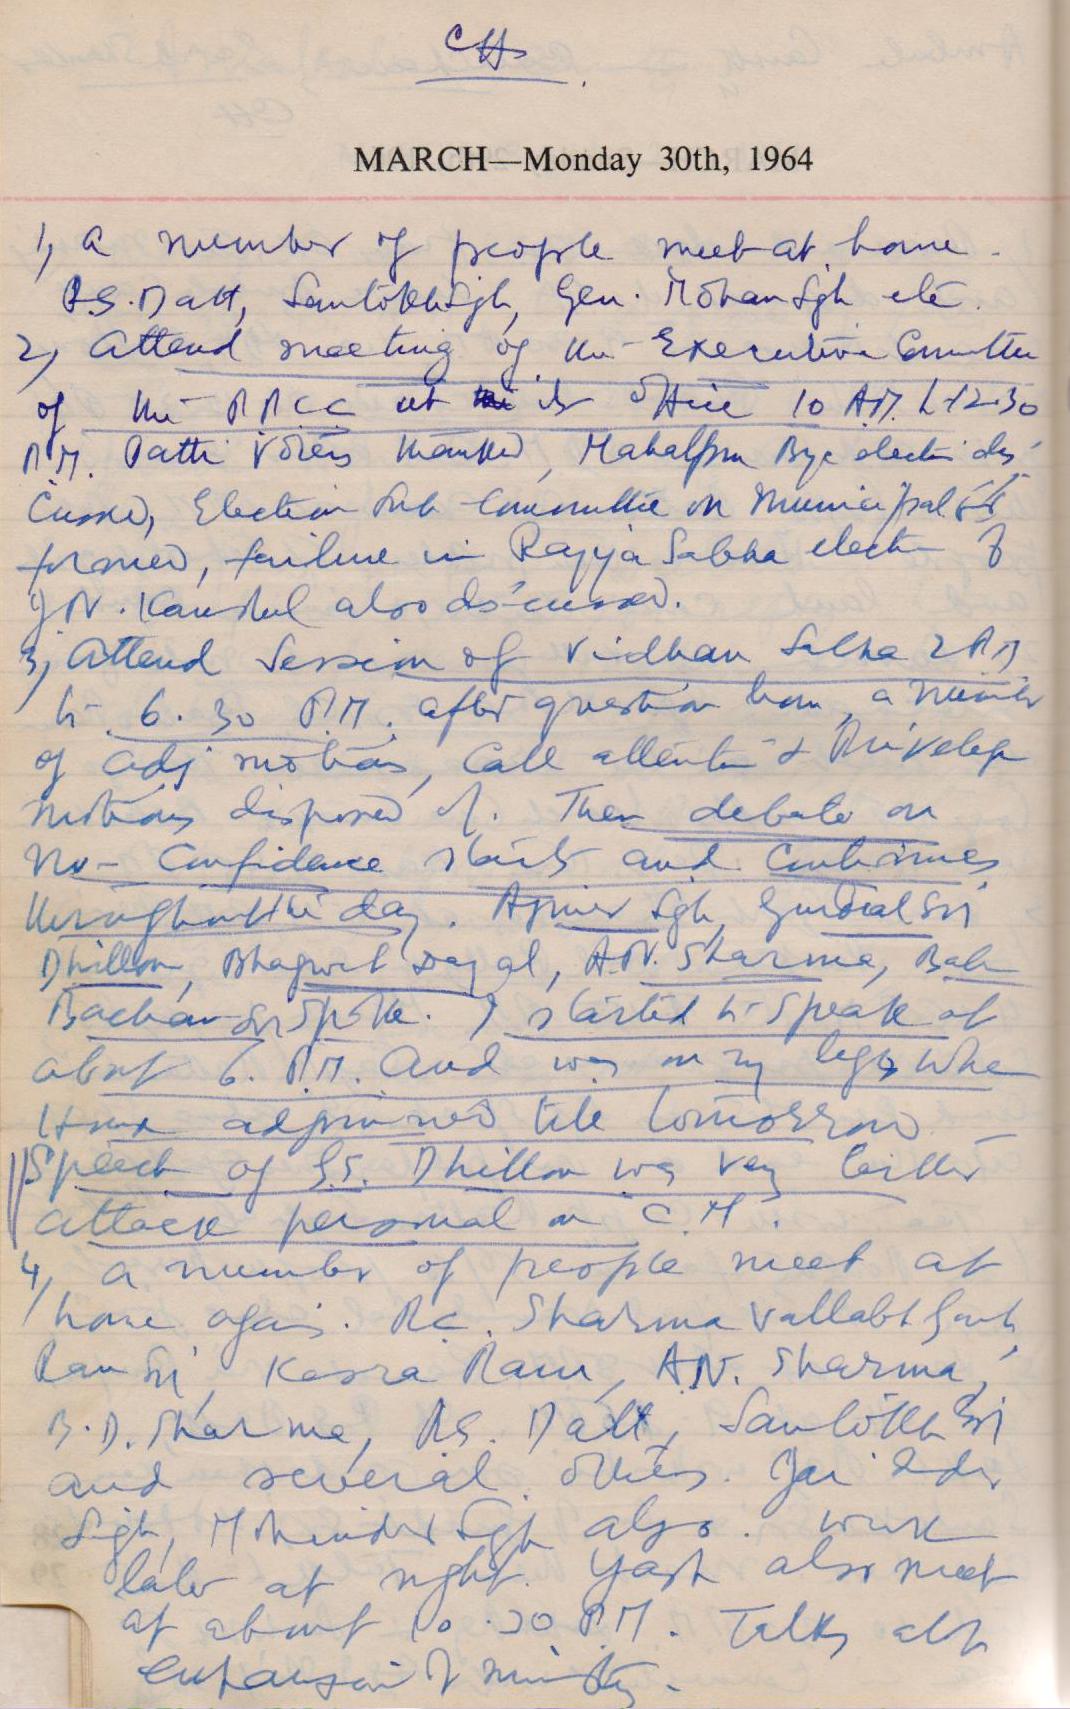 CH
MARCH—Monday 30th, 1964
1, A number of people meet at home.
P.S. Datt, Santokh Sgh, Gen. Mohan Sgh etc.
2, Attend meeting of the Executive Committee
of the PPCC at its office 10 A.M. to 12-30
P.M. Patti voters thanked, Mahalpur Bye election dis-
cussed, Election Sub-Committee on Municipalities
formed, failure in Rajya Sabha election of
J.N. Kaushal also discussed.
3, Attend Session of Vidhan Sabha 2 PM
to 6.30 P.M. after question hour, a number
of adj motions, call attention & Privelege
motions disposed of. Then debate on
No-Confidence starts and continues
throughout the day. Ajmer Sgh, Gurdial Sn
Dhillon, Bhagwat Dayal, A.N. Sharma,
Bachan Sn spoke. I started to speak at
about 6. P.M. and was on my legs when
House adjourned till tomorrow
Speech of G.S. Dhillon was very bitter
attack personal on C.M.
4, A number of people meet at
home again. R.C. Sharma Vallabhgarh,
Ran Sn, Kesra Ram, A.N. Sharma,
B.D. Sharma, P.S. Datt, Santokh Sn
and several others. Jai Inder
Sigh, Mohinder Sgh also. Work
late at night. Yash also meet
at about 10.30 PM. Talks abt
expansion of ministry.